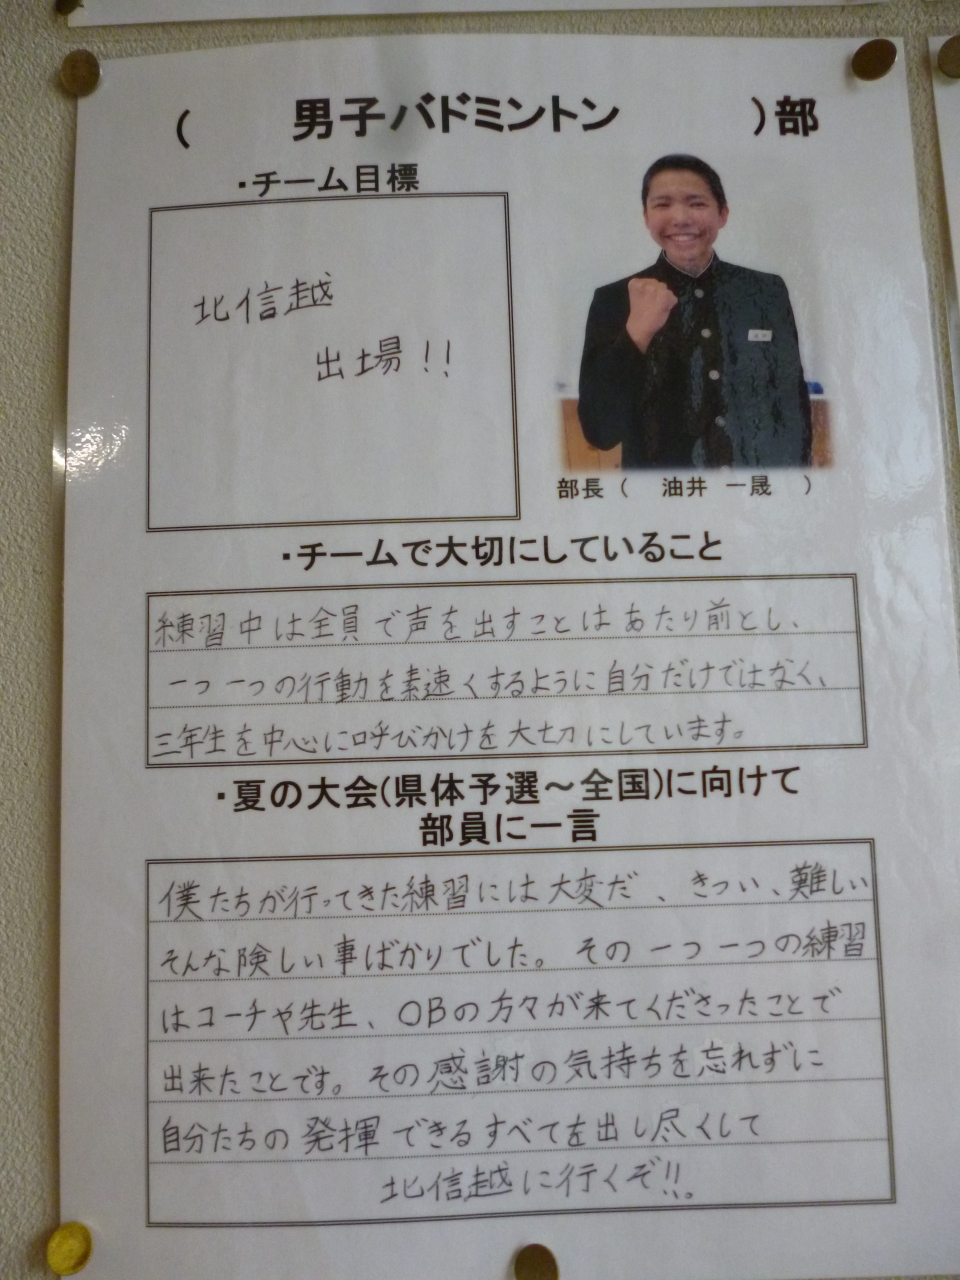 ( 男子バドミントン )部
・チーム目標
北信越
出場!!
部長( 油井 一晟 )
・チームで大切にしていること
練習中は全員で声を出すことはあたり前とし、
一つ一つの行動を素速くするように自分だけではなく、
三年生を中心に呼びかけを大切にしています。
・夏の大会(県体予選～全国)に向けて
部員に一言
僕たちが行ってきた練習には大変だ、きつい、難しい
そんな険しい事ばかりでした。その一つ一つの練習
はコーチや先生、OBの方々が来てくださったことで
出来たことです。その感謝の気持ちを忘れずに
自分たちの発揮できるすべてを出し尽くして
北信越に行くぞ!!。